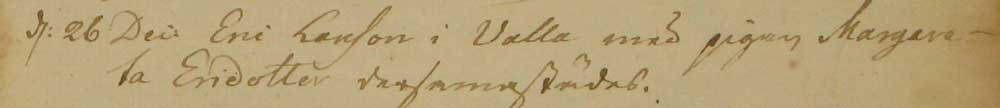 d: 26 Dec: Eric Larson i Valla med pigan Margare-
ta Ersdotter dersammastädes.